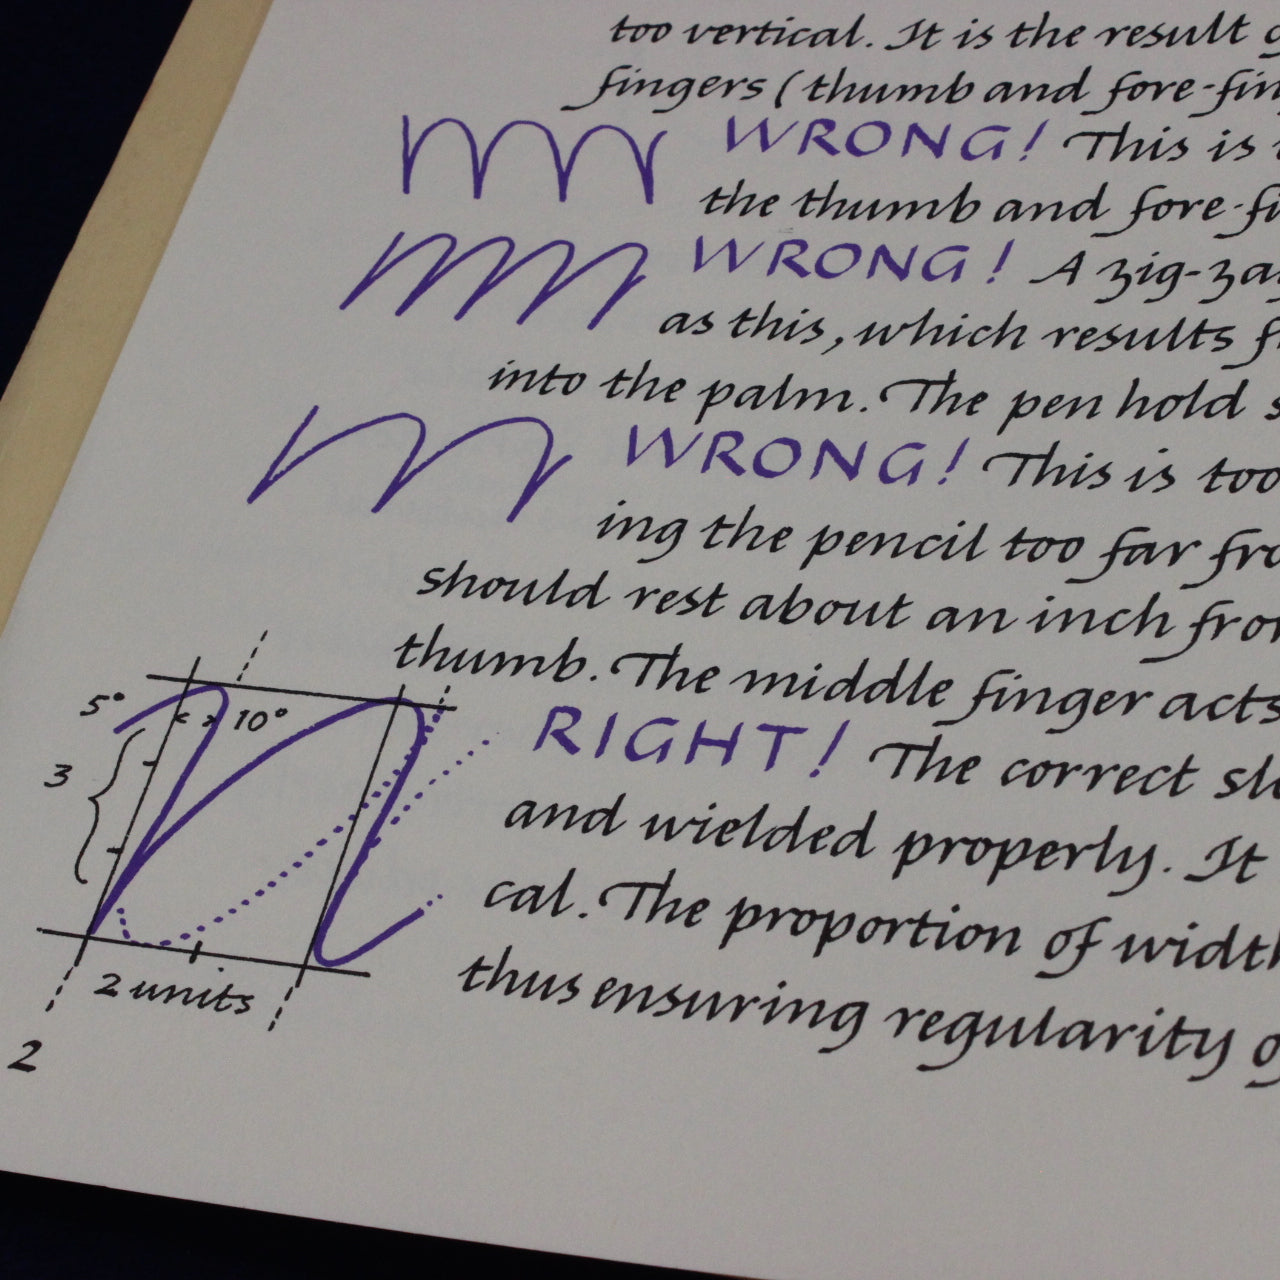 too vertical. It is the result
fingers (thumb and fore-fin
WRONG! This is
the thumb and fore-fi
WRONG! A zig-za
as this, which results f
into the palm. The pen hold s
WRONG! This is too
ing the pencil too far fro
should rest about an inch fro
thumb. The middle finger acts
5° 10°
RIGHT! The correct sl
3
and wielded properly. It
cal. The proportion of widt
2 units
thus ensuring regularity o
2